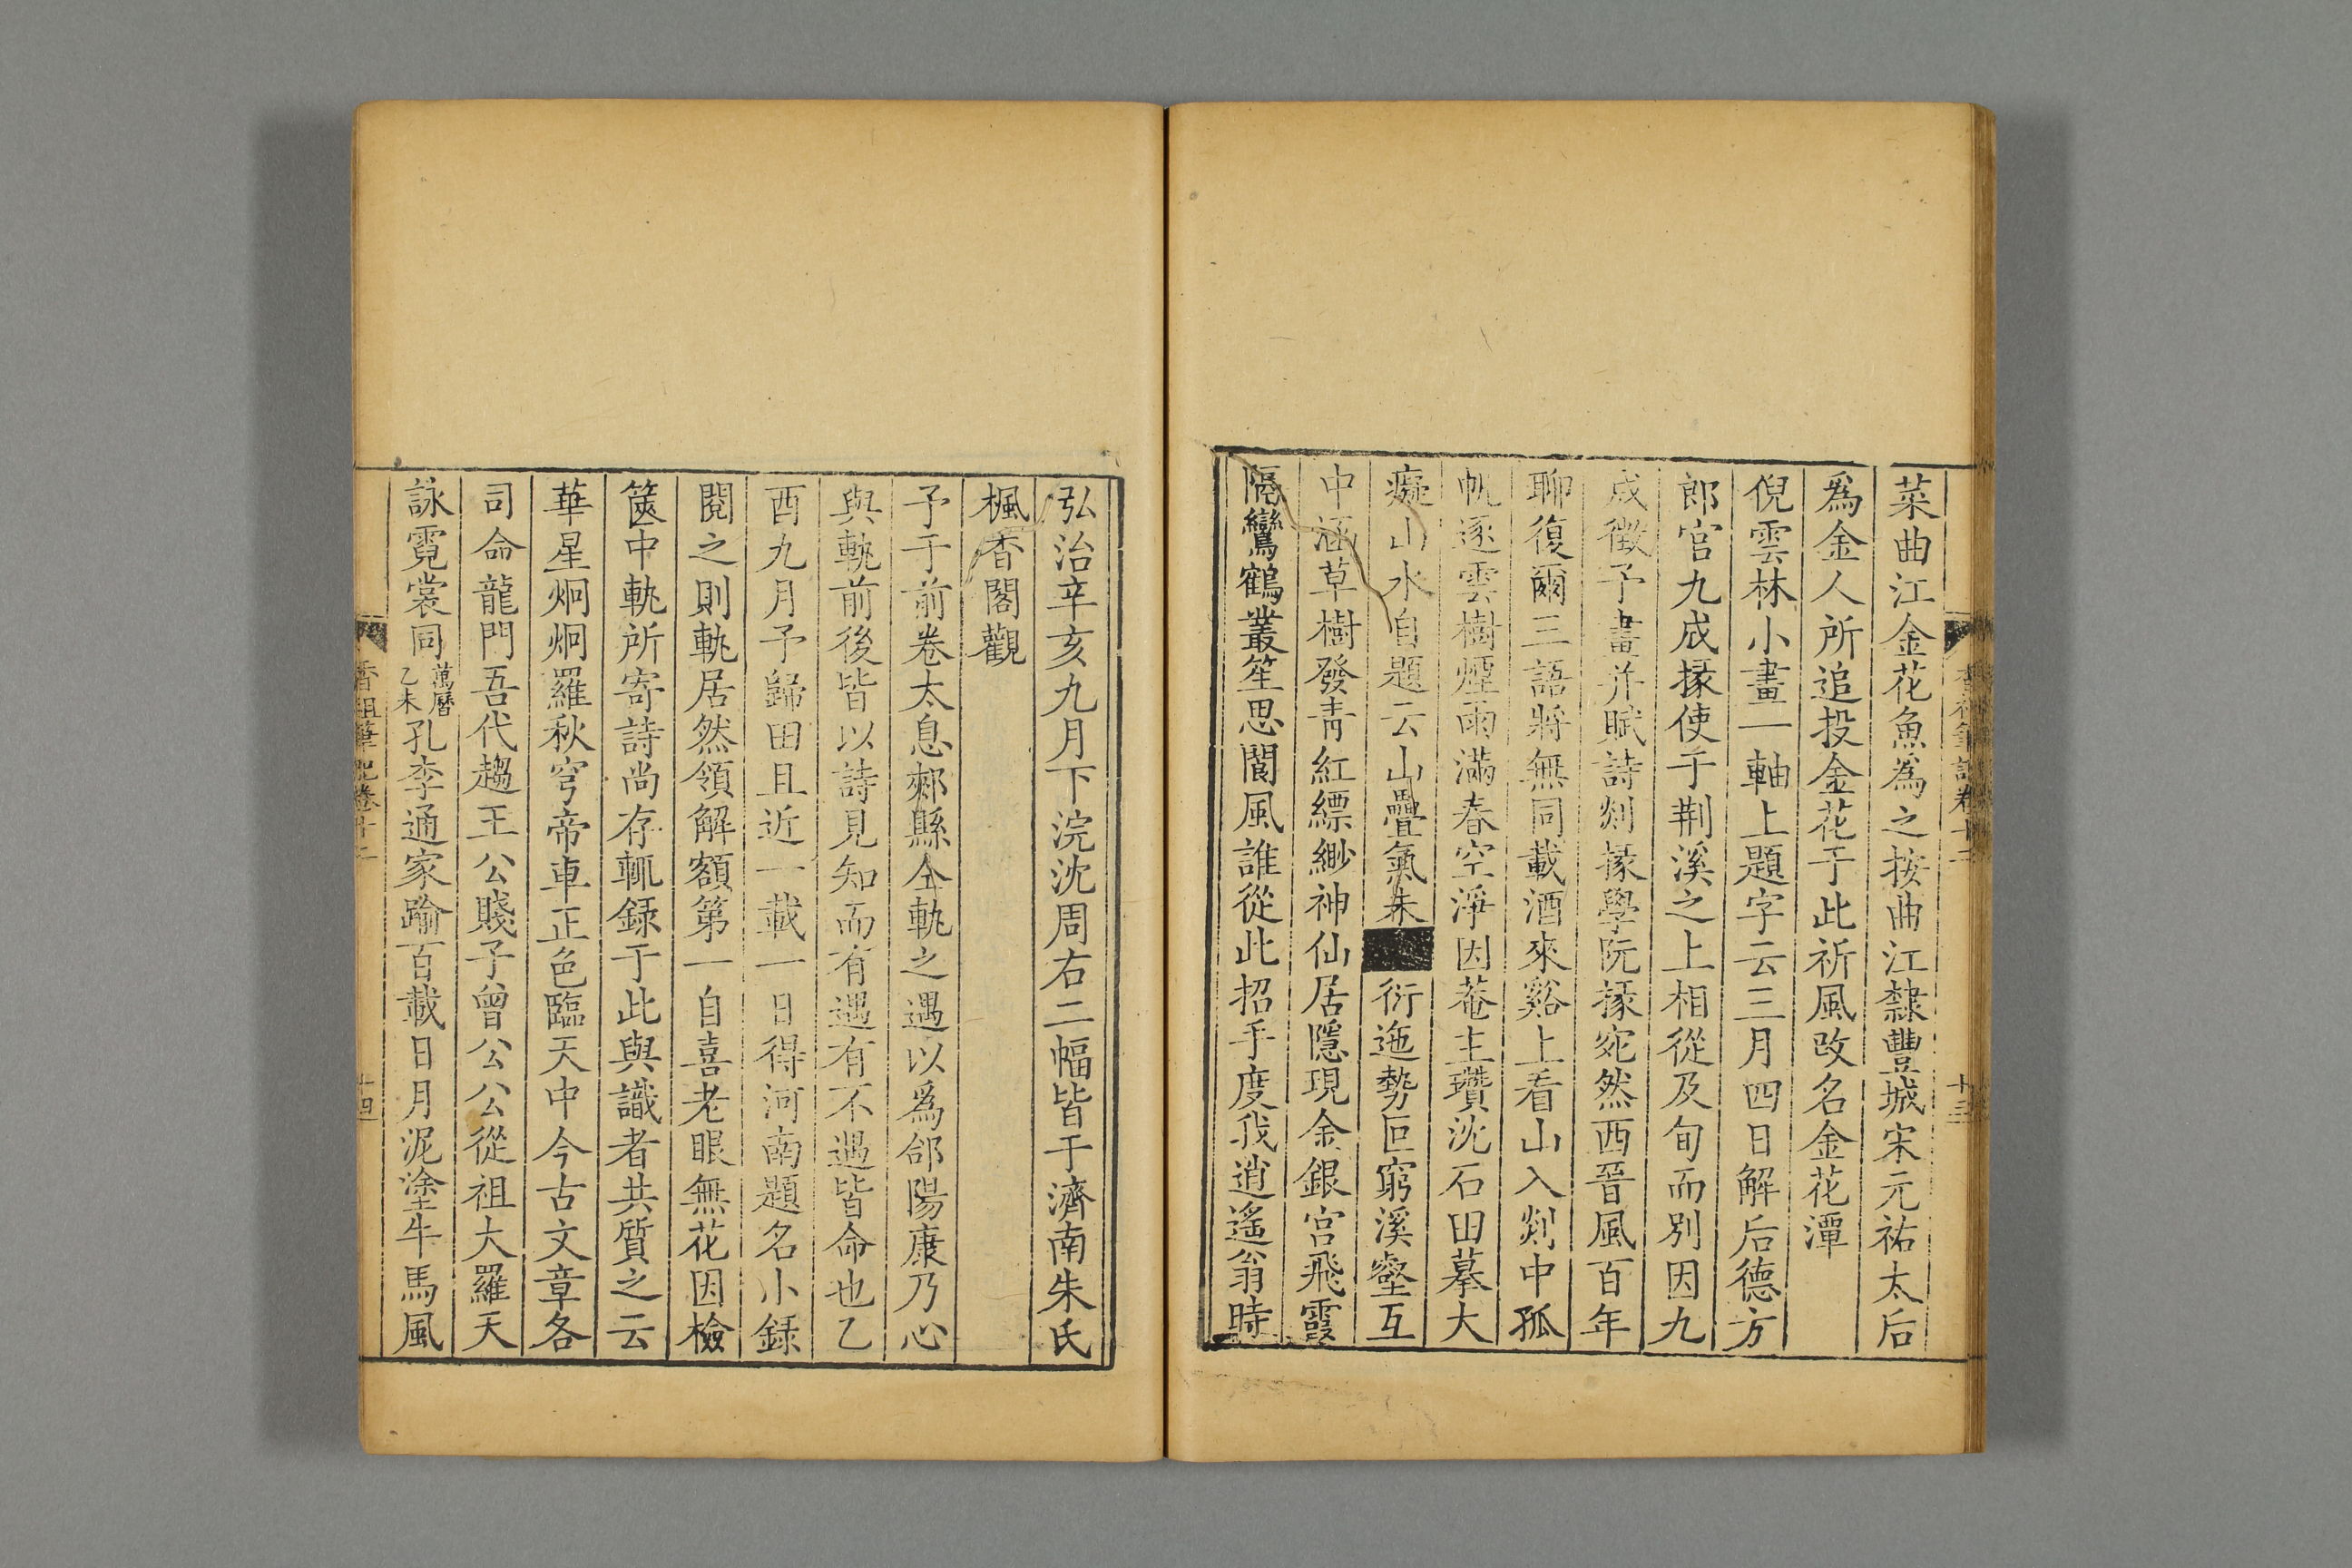 菜曲江金花魚為之按曲江隸豐城宋元祐太后
為金人所追投金花于此祈風改名金花潭
倪雲林小畫一軸上題字云三月四日解后德方
郎官九成掾使于荆溪之上相從及旬而別因九
成徵予畫并賦詩剡掾學阮掾宛然西晉風百年
聊復爾三語將無同載酒來谿上看山入剡中孤
帆逐雲樹煙雨滿春空淨因菴主瓚沈石田摹大
癡山水自題云山疊氣朱衍迤勢叵窮溪壑互
中涵草樹發青紅縹緲神仙居隱現金銀宮飛霞
隔鸞鶴叢笙思閬風誰從此招手度我逍遙翁時
香祖筆記卷十二
十三
弘治辛亥九月下浣沈周右二幅皆于濟南朱氏
楓香閣觀
予于前卷太息郟縣仝軌之遇以為郃陽康乃心
與軌前後皆以詩見知而有遇有不遇皆命也乙
酉九月予歸田且近一載一日得河南題名小錄
閱之則軌居然領解額第一自喜老眼無花因檢
篋中軌所寄詩尚存輒録于此與識者共質之云
華星炯炯羅秋穹帝車正色臨天中今古文章各
司命龍門吾代趨王公賤子曾公公從祖大羅天
詠霓裳同萬曆乙未孔李通家踰百載日月泥塗牛馬風
香祖筆記卷十二
十四